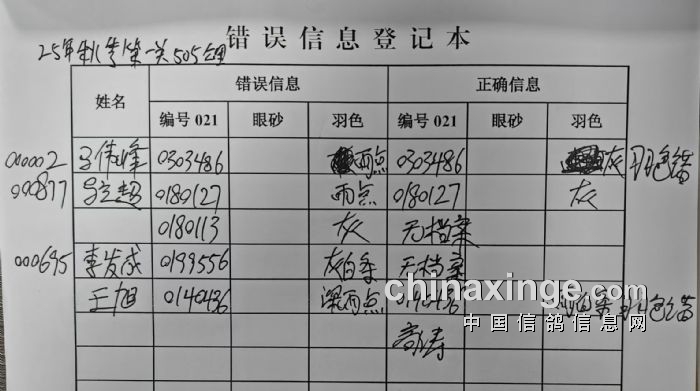 错误信息登记本
25年秋季第一关505公里
姓名 错误信息 正确信息
编号021 眼砂 羽色 编号021 眼砂 羽色
000002 马伟峰 0303486 雨点 0303486 灰 羽色错
000877 马立超 0180127 雨点 0180127 灰
0180113 灰 无档案
000695 李发成 0199556 灰白条 无档案
王旭 0140436 深雨点 0140436 羽色错
chinaxinge.com
中国信鸽信息网